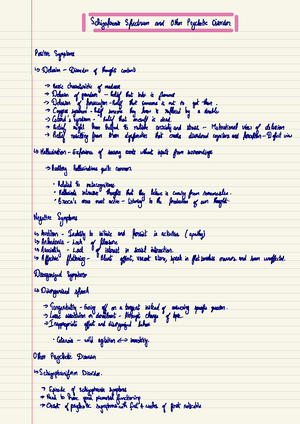 Schizophrenia Spectrum and Other Psychotic Disorders
Positive Symptoms
↳ Delusion - Disorder of thought content
→ Basic characteristic of madness
→ Delusion of grandeur - Belief that he is famous
→ Delusion of persecution - Belief that someone is out to get them.
→ Capgras syndrome - Belief someone they know is replaced by a double
→ Cotard's syndrome - belief that oneself is dead.
→ Belief might help to reduce anxiety and stress - Motivational view of delusion
→ Belief resulting from brain dysfunction that cognition and perception - Deficit view
↳ Hallucination - Experience of sensory events without inputs from surroundings
→ Auditory hallucinations quite common.
• Related to metacognition
• thoughts that they believe is coming from somewhere.
• Broca's area most active - listening to the production of own thought.
Negative Symptoms
↳ Avolition - Inability to initiate and persist in activities (apathy)
↳ Anhedonia - Lack of pleasure
↳ Asociality - Lack of interest in social interaction.
↳ Affective flattening - Blunt affect, vacant stare, speak in flat and toneless manner and seem unaffected.
Disorganised Symptoms
↳ Disorganised speech
→ Tangentiality - Going off on a tangent instead of answering specific question.
→ Loose association or derailment - Abrupt change of topic.
→ Inappropriate affect and disorganised
• Catatonia - wild agitation ↔ immobility.
Other Psychotic Disorders
↳ Schizophreniform Disorder.
→ Episode of schizophrenia symptoms
→ Need to have good premorbid functioning
→ Onset of psychotic symptoms with first 4 weeks of first noticeable